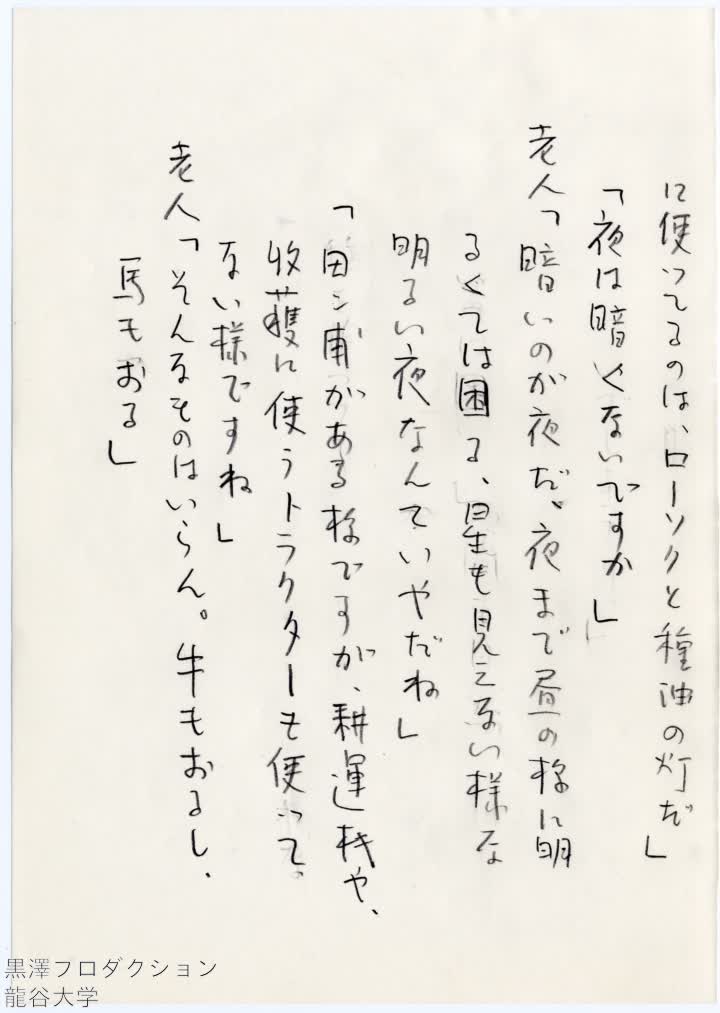 に使ってるのは、ローソクと種油の灯だ」
「夜は暗くないですか」
老人「暗いのが夜だ、夜まで昼の様に明
るくては困る、星も見えない様な
明るい夜なんていやだね」
「田ン甫がある様ですが、耕運機や、
収獲に使うトラクターも使って
ない様ですね」
老人「そんなものはいらん。牛もおるし、
馬もおる」
黒澤プロダクション
龍谷大学